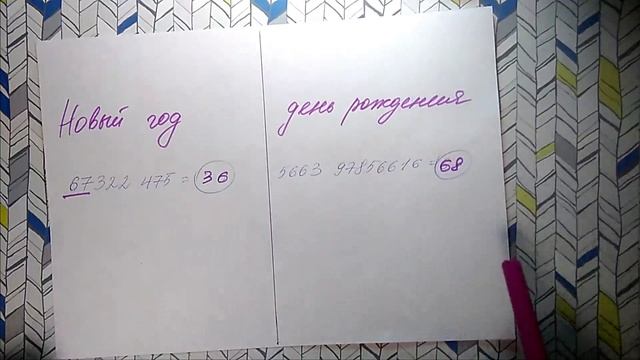 Новый год
67322 475 = 36
день рождения
5663 97856616 = 68